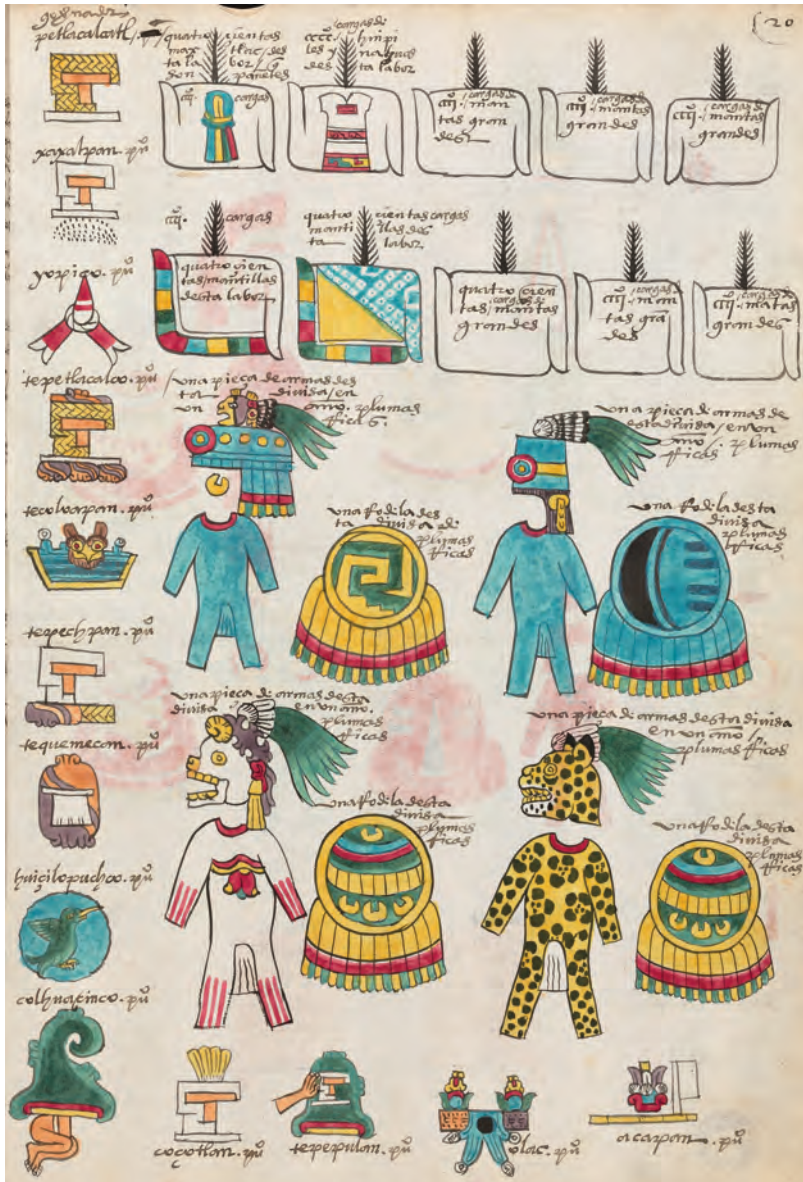 petlacalcatl /
xaxalpan . pu͞o
yopico . pu͞o
tepetlacalco . pu͞o
tecoloapan . pu͞o
tepechpan . pu͞o
tequemecan . pu͞o
huiçilopuchco . pu͞o
colhuaçinco . pu͞o
quatro çientas
max tlac / des
ta la bor / q̄
son panetes
cargas
cargas de
cccc / huipi
les y naguas
des ta labor
20
cargas de
man
tas gran
des
cargas de
mantas
grandes
cargas de
mantas
grandes
cargas
quatro çien
tas / mantillas
desta labor
quatro çientas cargas
manti llas des
ta labor
quatro çien
tas / cargas de mantas
grandes
cargas de
man
tas grã
des
cargas de
matas
grandes
una pieça de armas des
ta divisa / en
un año . plumas
Ricas .
una pieça de armas de
esta divisa / en un
año / . plumas
Ricas
una Rodela des
ta divisa de
plumas
Ricas
una Rodela desta
divisa
plumas
Ricas
una pieça de armas desta
divisa en un año .
plumas
Ricas
una pieça de armas desta divisa
en un año /
plumas Ricas
una Rodela desta
divisa
plumas
Ricas
una Rodela desta
divisa
plumas
Ricas
coçotlan . pu͞o
tepepulan . pu͞o
olac . pu͞o
acapan . pu͞o